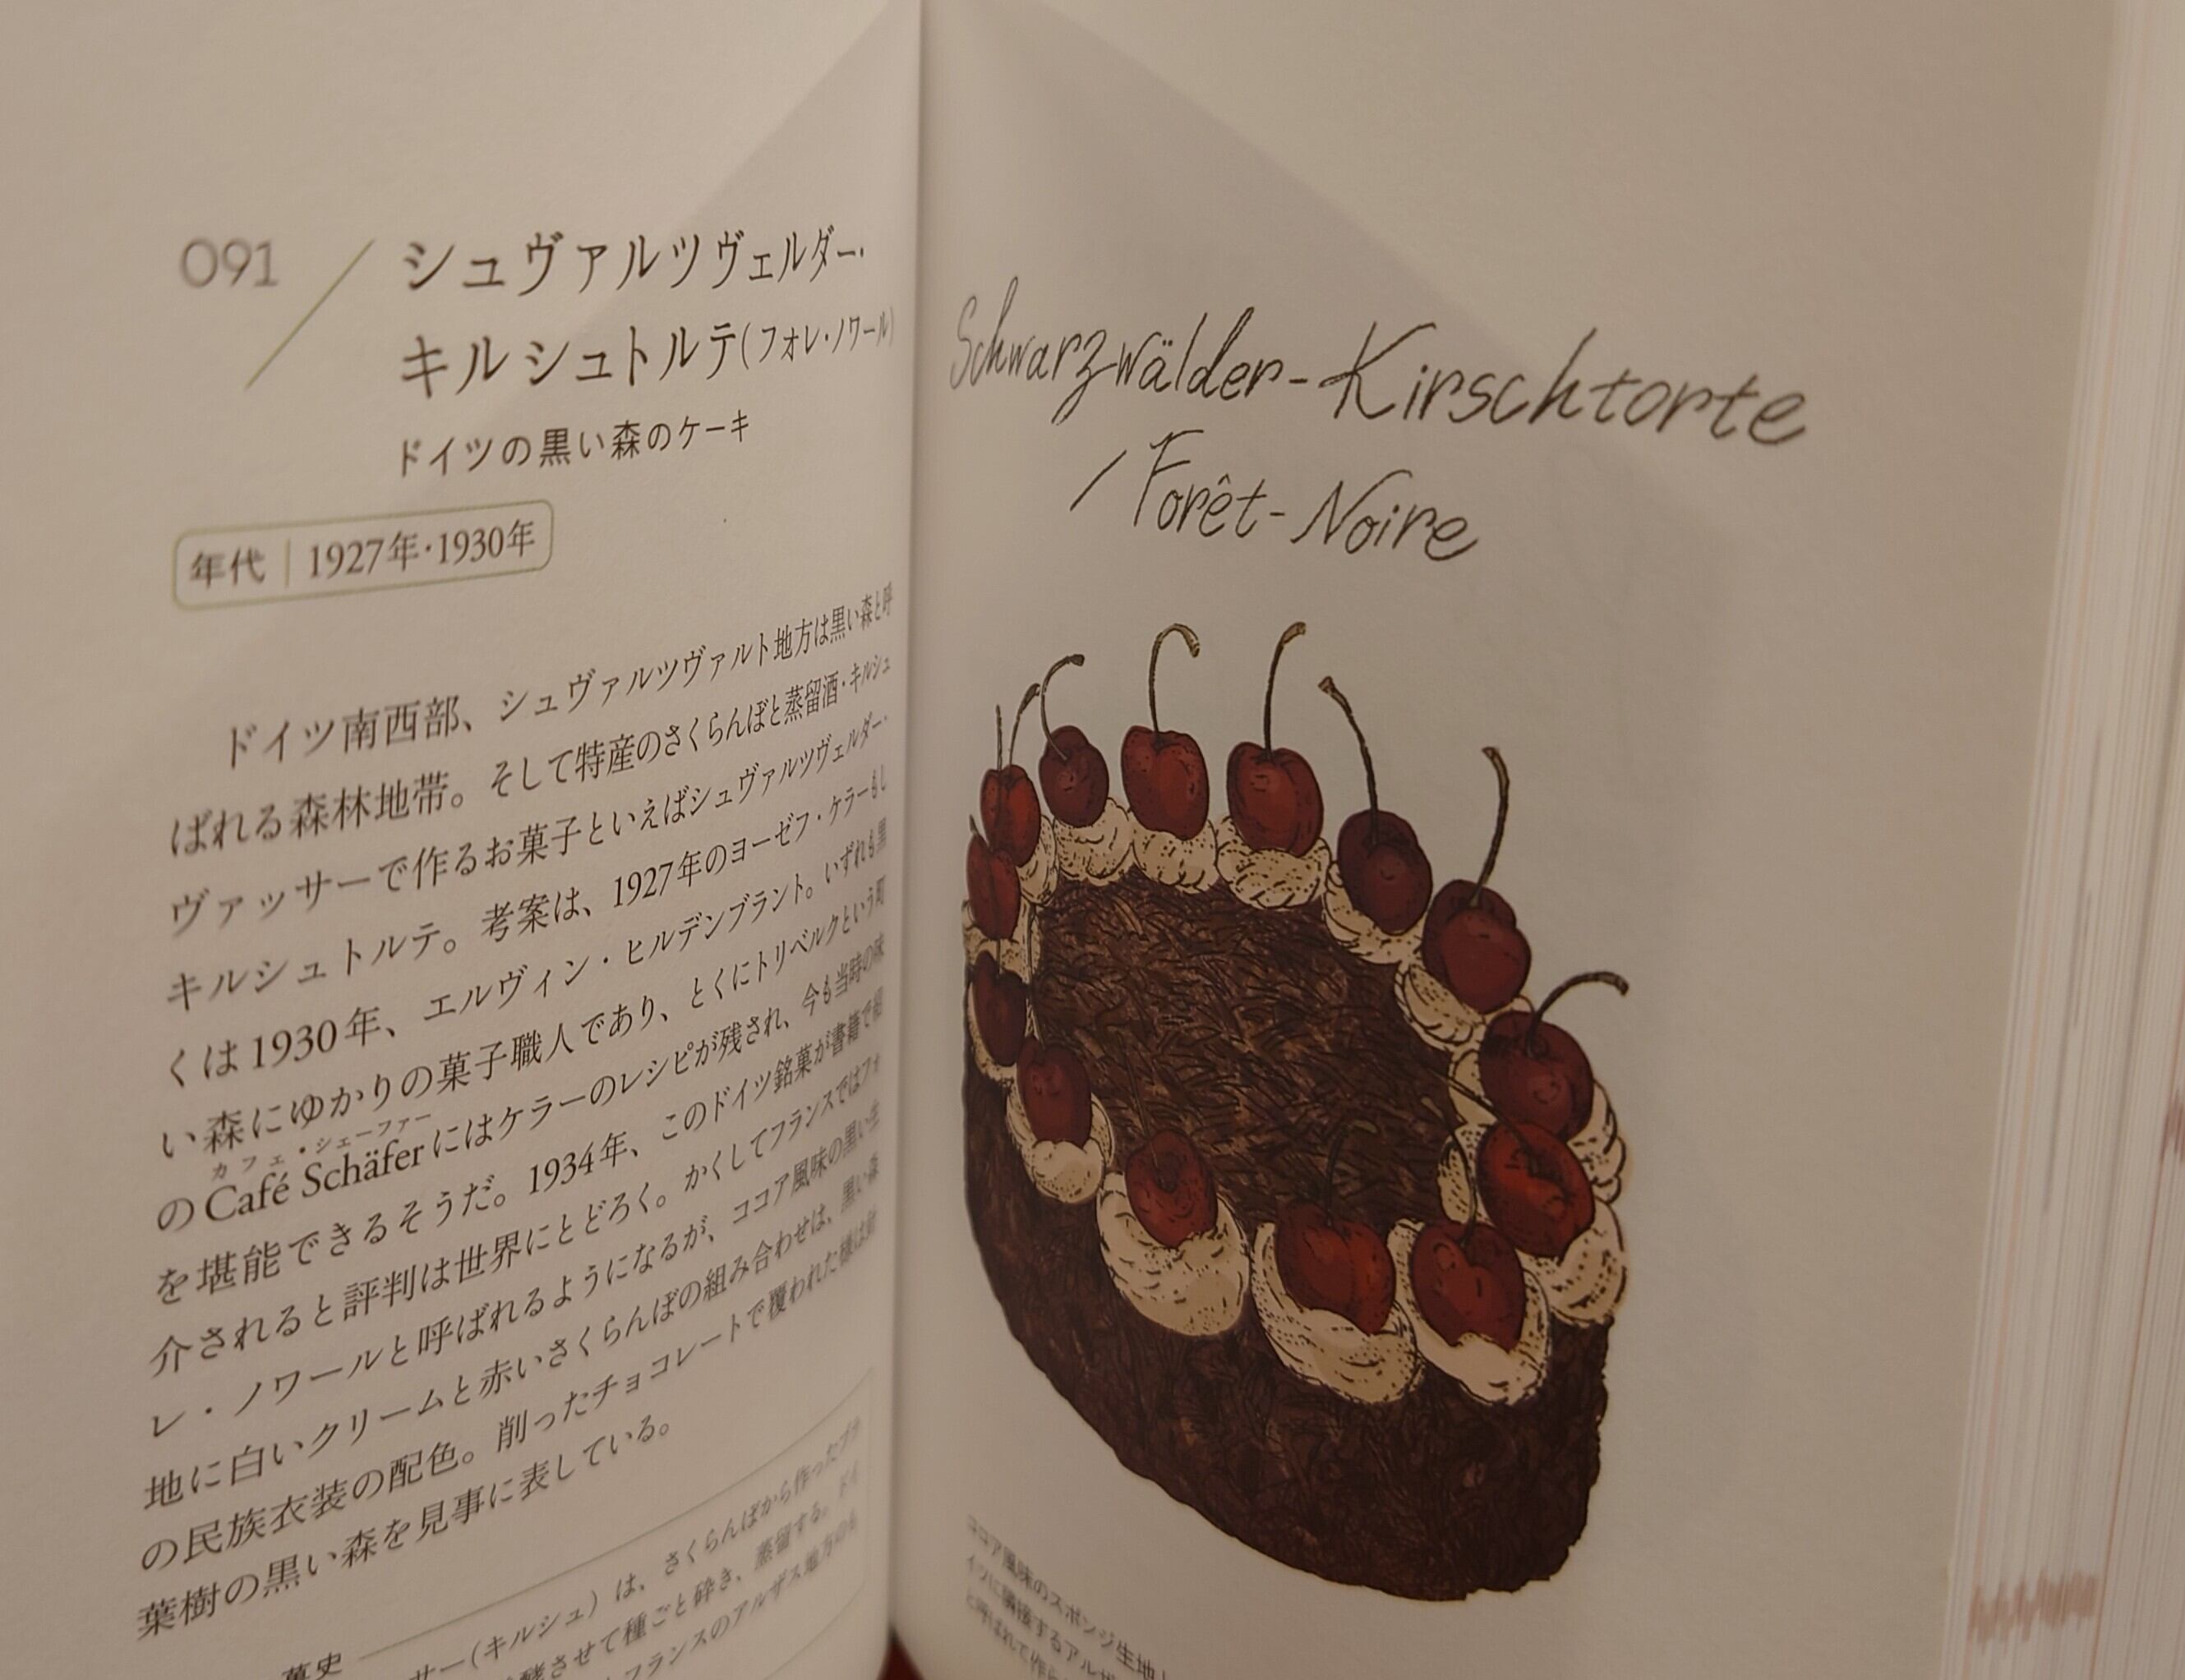 091
シュヴァルツヴェルダー・
キルシュトルテ(フォレ・ノワール)
ドイツの黒い森のケーキ
年代 | 1927年・1930年
ドイツ南西部、シュヴァルツヴァルト地方は黒い森と呼
ばれる森林地帯。そして特産のさくらんぼと蒸留酒・キルシュ
ヴァッサーで作るお菓子といえばシュヴァルツヴェルダー・
キルシュトルテ。考案は、1927年のヨーゼフ・ケラーもし
くは1930年、エルヴィン・ヒルデンブラント。いずれも黒
い森にゆかりの菓子職人であり、とくにトリベルクという町
カフェ・シェーファー
のCafé Schäferにはケラーのレシピが残され、今も当時の味
を堪能できるそうだ。1934年、このドイツ銘菓が書籍で紹
介されると評判は世界にとどろく。かくしてフランスではフォ
レ・ノワールと呼ばれるようになるが、ココア風味の黒い生
地に白いクリームと赤いさくらんぼの組み合わせは、黒い森
の民族衣装の配色。削ったチョコレートで覆われた様は針
葉樹の黒い森を見事に表している。
菓史
サー(キルシュ)は、さくらんぼから作ったブラ
酸させて種ごと砕き、蒸留する。ドイ
フランスのアルザス地方のも
Schwarzwälder-Kirschtorte
/Forêt-Noire
ココア風味のスポンジ生地
イツに隣接するアルザ
と呼ばれて作ら